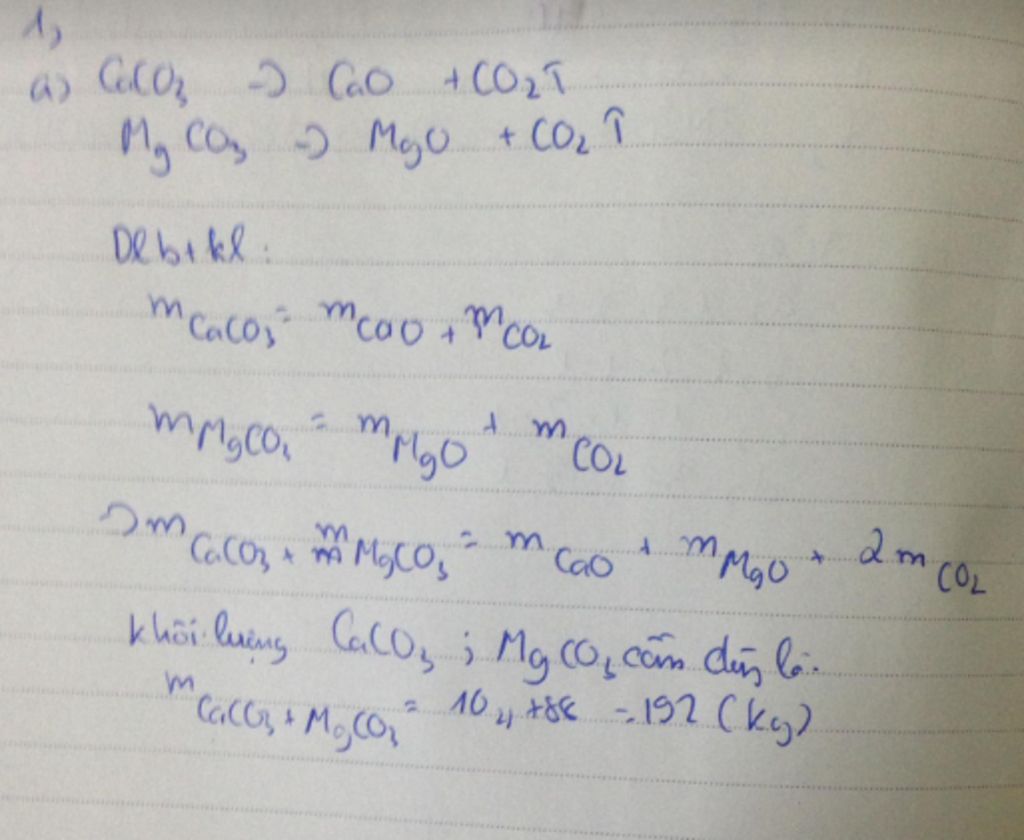 1,
a) CaCO3 → CaO + CO2↑
MgCO3 → MgO + CO2↑
Dl bt kl:
mCaCO3 = mCaO + mCO2
mMgCO3 = mMgO + mCO2
→ mCaCO3 + mMgCO3 = mCaO + mMgO + 2mCO2
khối lượng CaCO3 ; MgCO3 cần dùng là:
mCaCO3 + MgCO3 = 104 + 88 = 192 (kg)